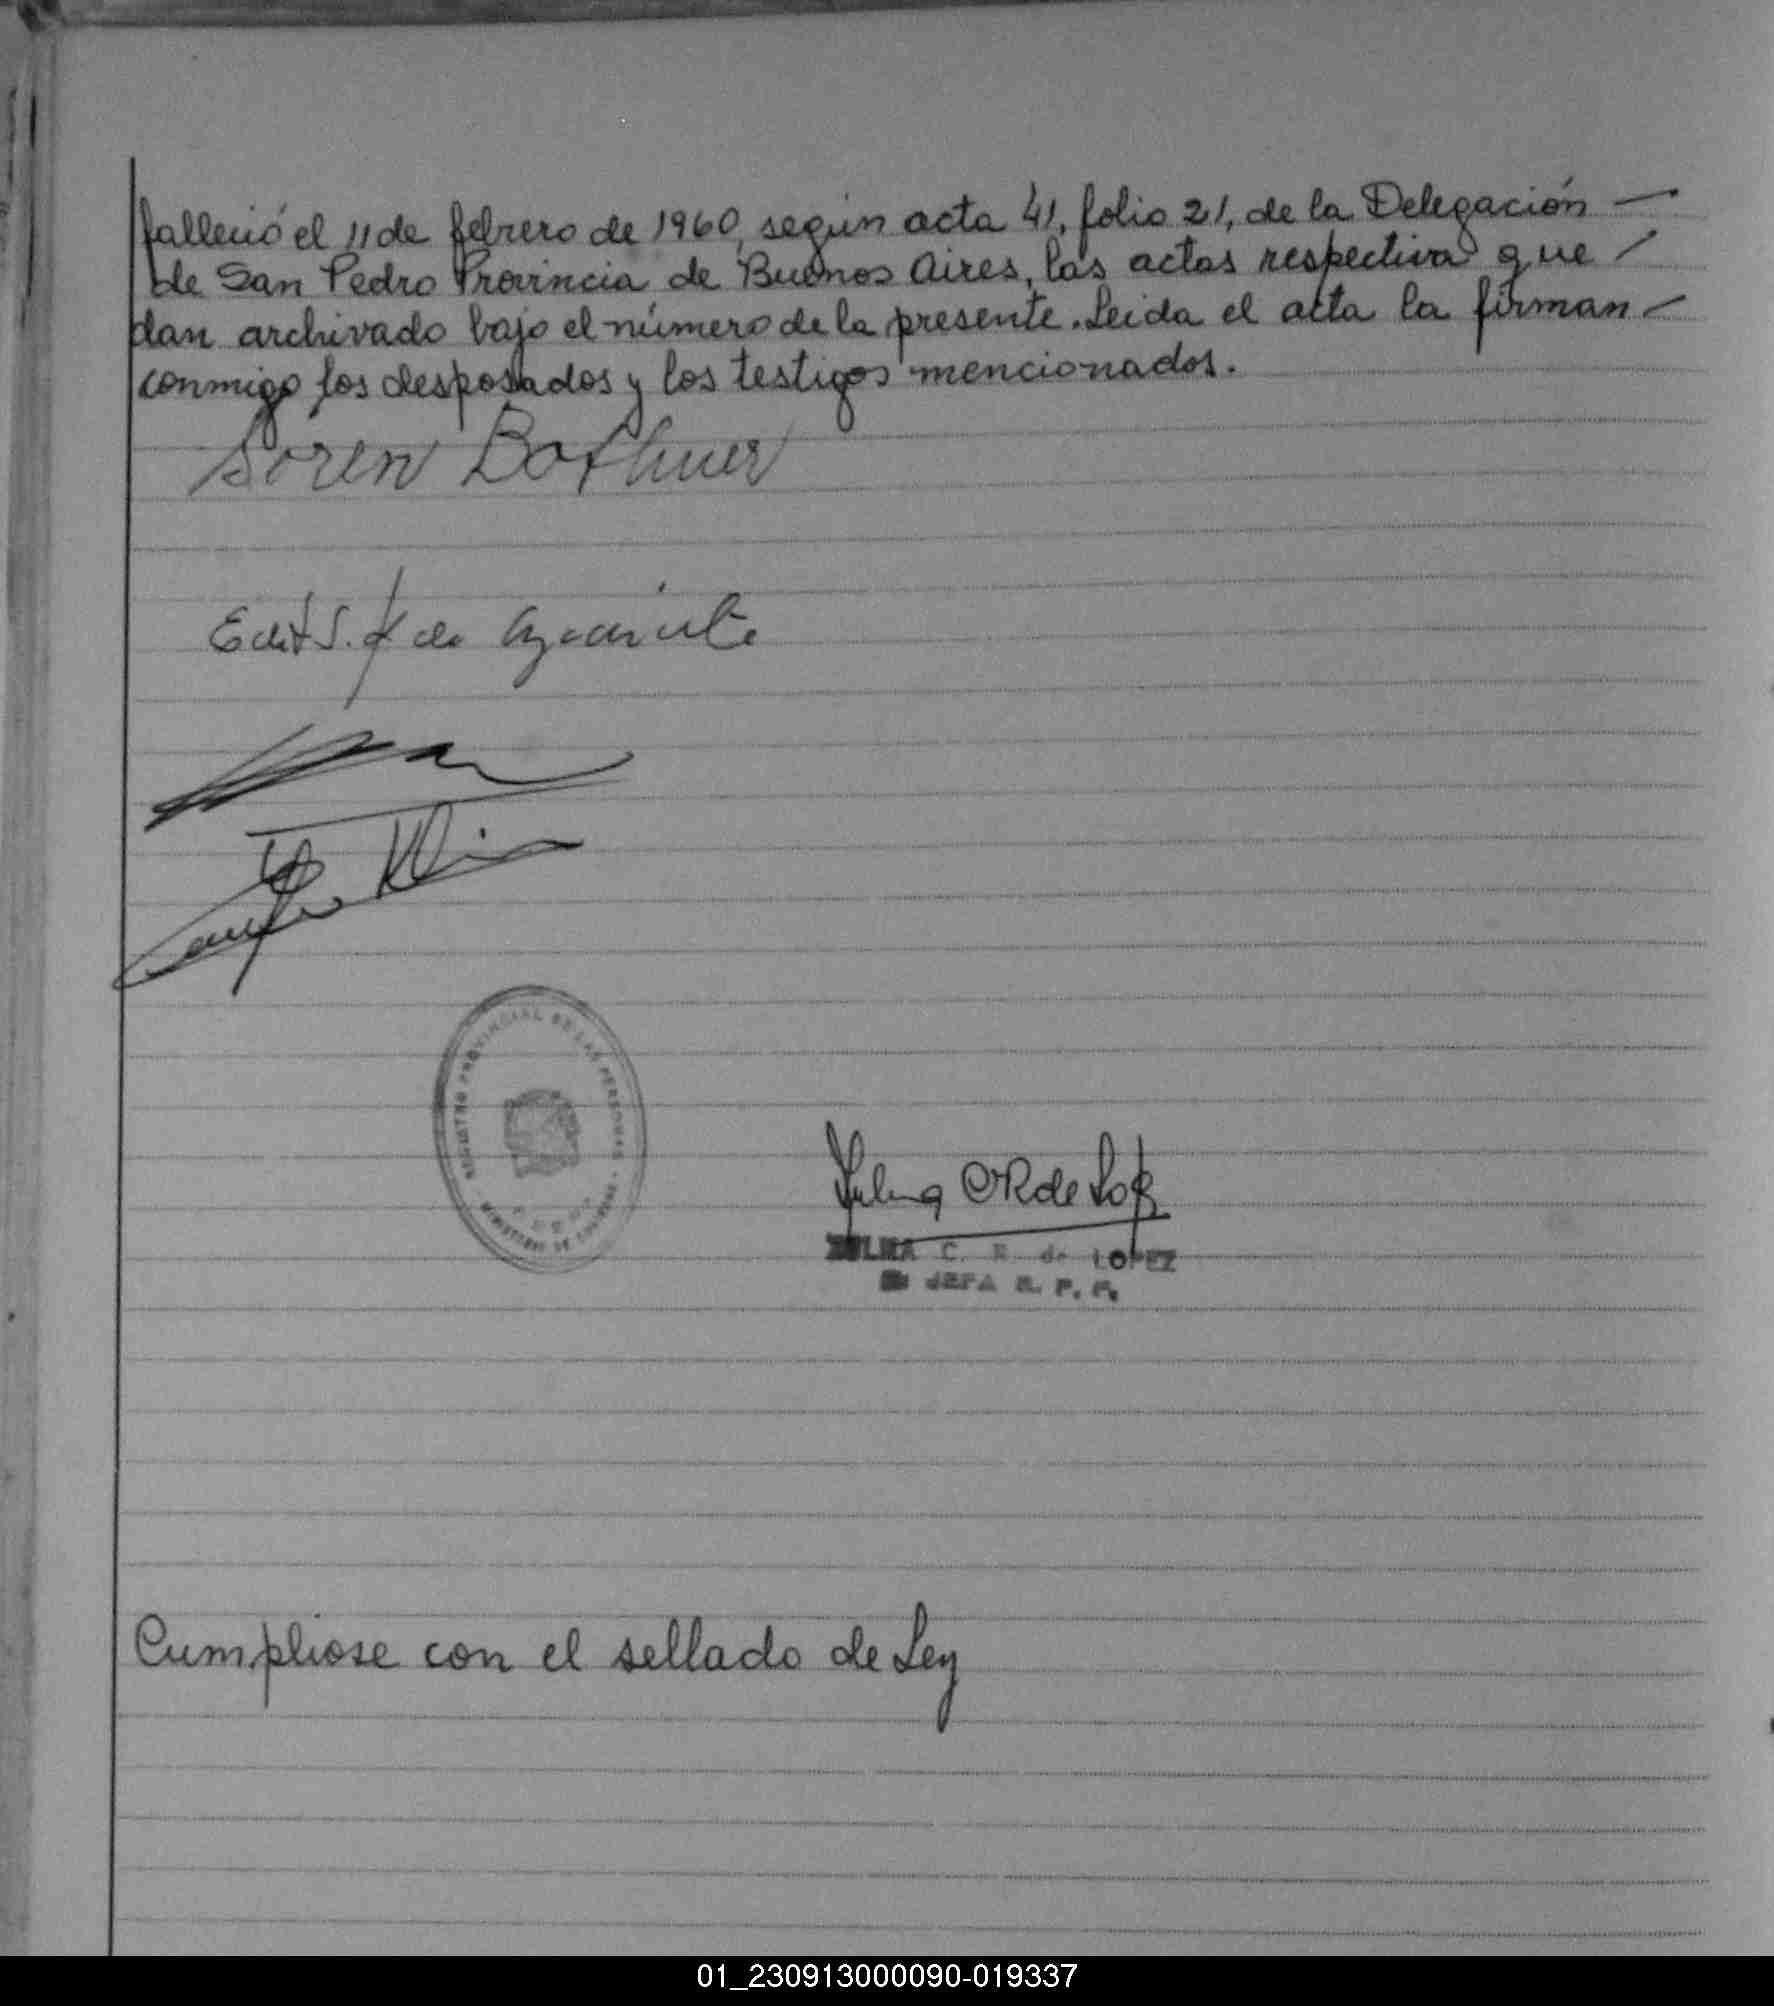 falleció el 11 de febrero de 1960, según acta 41, folio 21, de la Delegación —
de San Pedro Provincia de Buenos Aires, las actas respectiva que /
dan archivado bajo el número de la presente. Leida el acta la firman —
conmigo los desposados y los testigos mencionados.
Sören Bothner
Edit S. de
REGISTRO PROVINCIAL DE LAS PERSONAS
MINISTERIO DE GOBIERNO
Zulma C R de Lopez
ZULMA C. R. de LOPEZ
JEFA R. P. P.
Cumpliose con el sellado de Ley
01_230913000090-019337